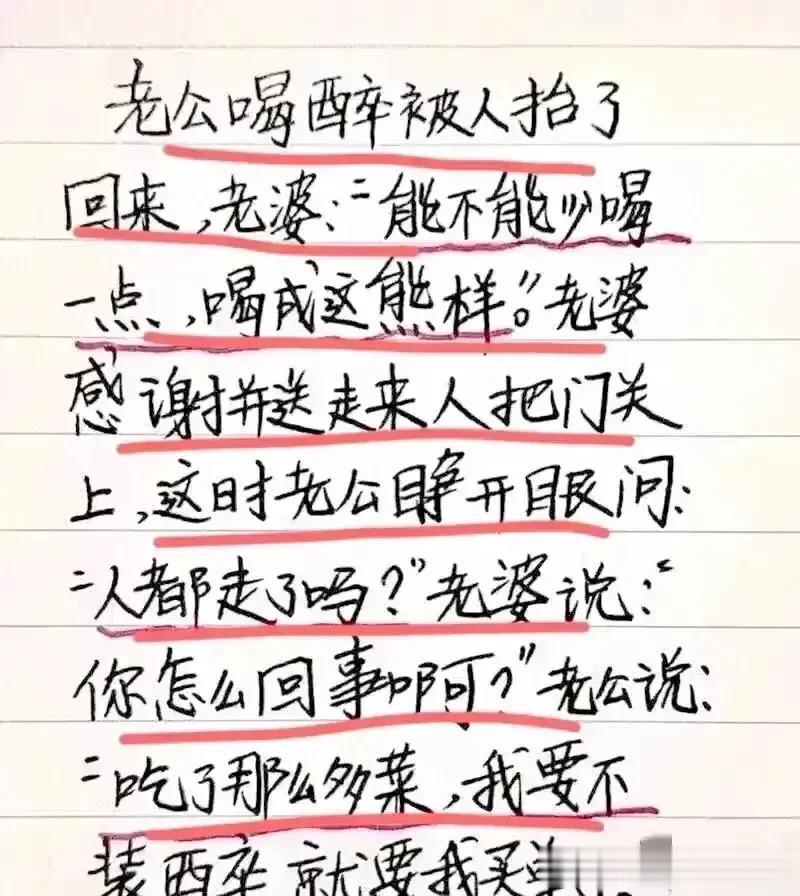 老公喝醉被人抬了
回来,老婆:“能不能少喝
一点,喝成这熊样。”老婆
感谢并送走来人把门关
上,这时老公睁开眼问:
“人都走了吗?”老婆说:“
你怎么回事啊?”老公说:
“吃了那么多菜,我要不
装醉就要我买单